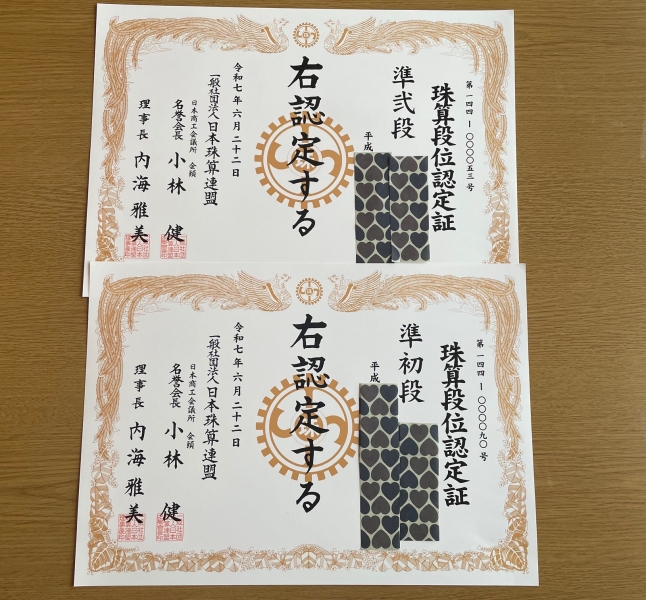 珠算段位認定証
第一四四-〇〇〇〇五三号
準弐段
平成
右認定する
令和七年六月二十二日
一般社団法人日本珠算連盟
日本商工会議所 会頭
名誉会長 小林 健
理事長 内海雅美
珠算段位認定証
第一四四-〇〇〇〇九〇号
準初段
平成
右認定する
令和七年六月二十二日
一般社団法人日本珠算連盟
日本商工会議所 会頭
名誉会長 小林 健
理事長 内海雅美